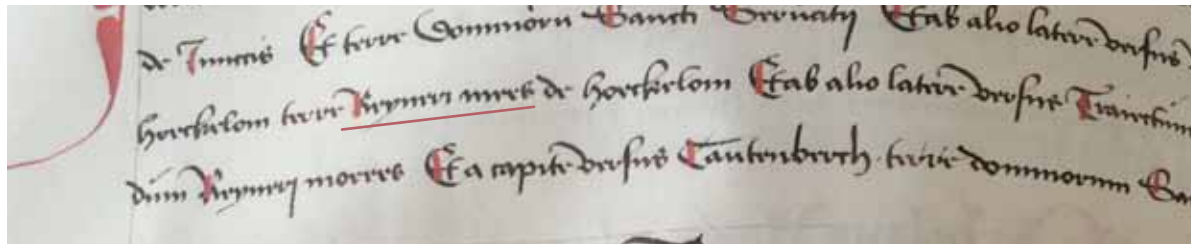 de Iunccis Et terre dominorum Sancti Servatij Et ab alio latere versus
hoeckelom terre Reyneri mees de hoeckelom Et ab alio latere versus Traiectum
dicti Reyneri moeres Et a capite versus Cautenberch terre dominorum